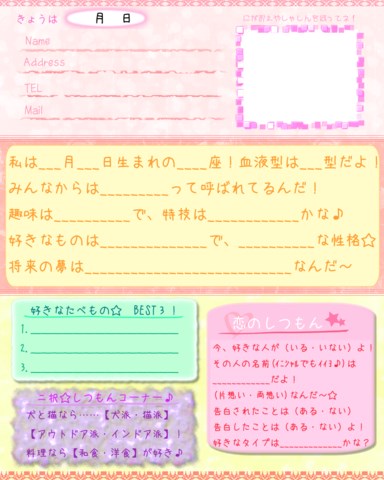 きょうは 月 日
にがおえやしゃしんを貼ってネ!
Name
Address
TEL
Mail
私は___月___日生まれの____座!血液型は___型だよ!
みんなからは_________って呼ばれてるんだ!
趣味は__________で、特技は____________かな♪
好きなものは______________で、__________な性格☆
将来の夢は___________________________なんだ〜
好きなたべもの☆ BEST3!
1.
2.
3.
二択☆しつもんコーナー♪
犬と猫なら……【犬派・猫派】
【アウトドア派・インドア派】!
料理なら【和食・洋食】が好き♪
恋のしつもん
今、好きなんが(いる・いない)よ!
その人の名前(イニシャルでもイイミ♪)は
____________だよ!
(片想い・両想い)なんだ〜☆
告白されたことは(ある・ない)
告白したことは(ある・ない)よ!
好きなタイプは_____________かな?